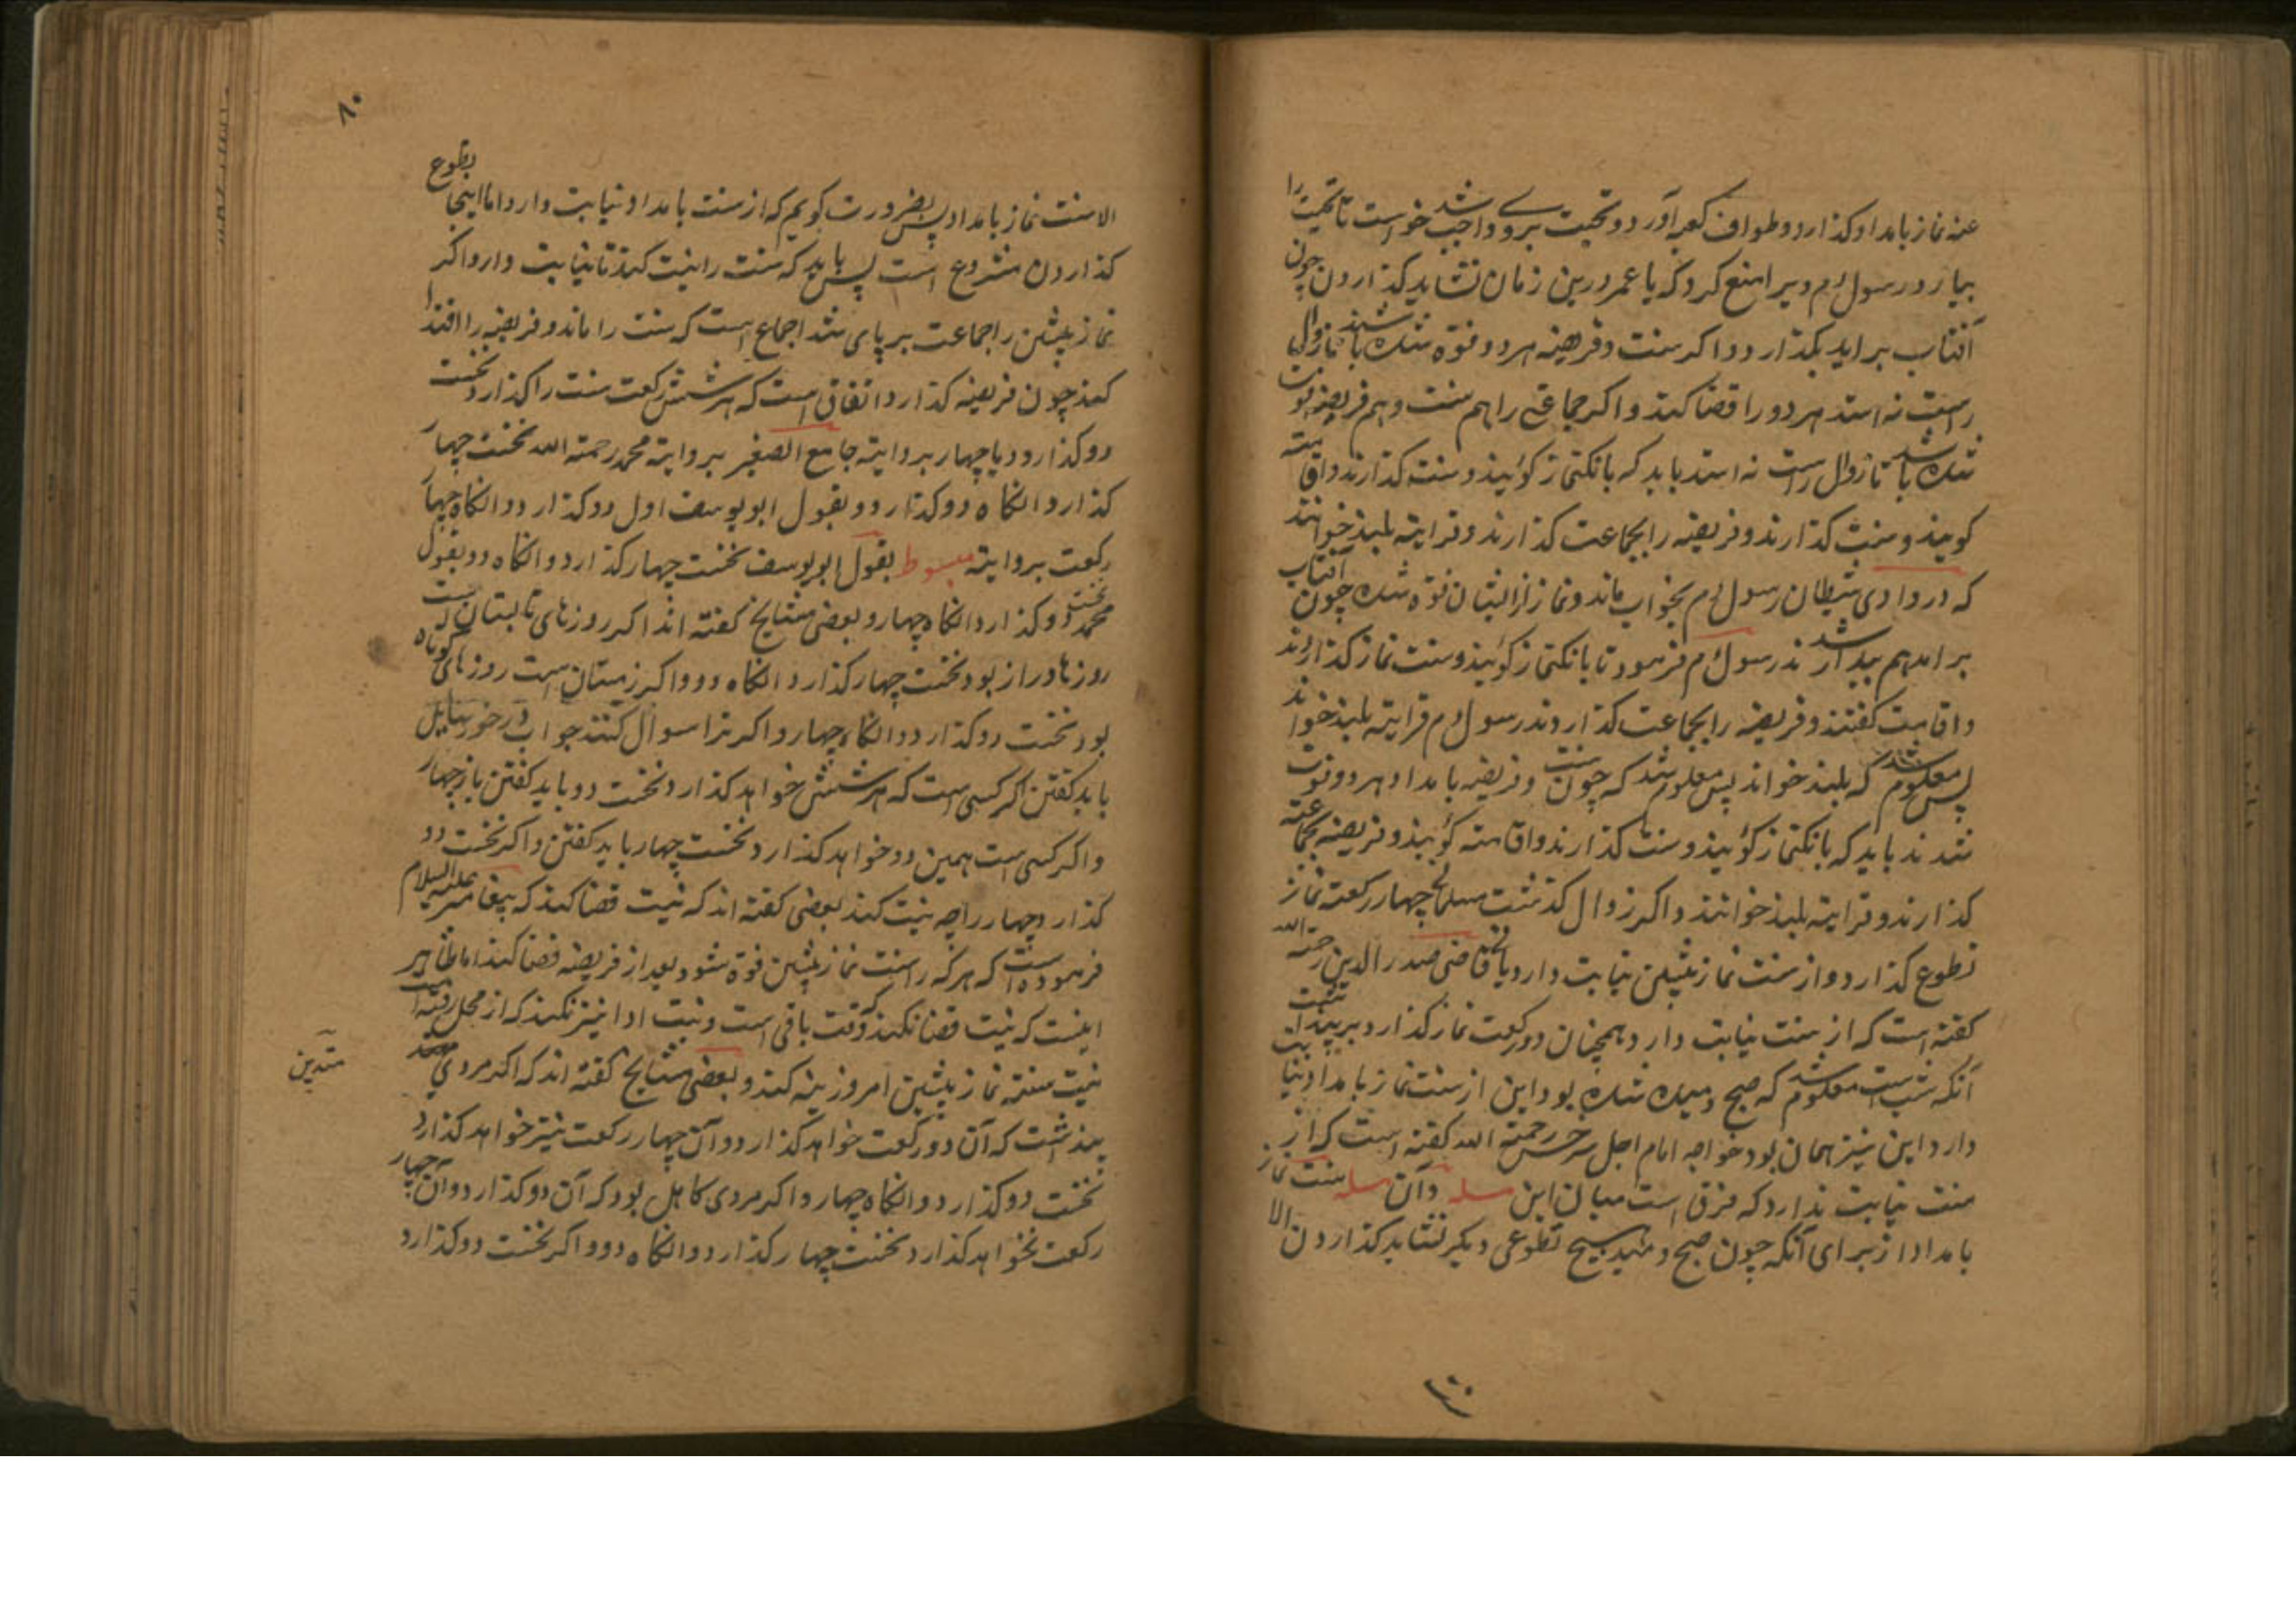 عنه نماز بامداد کذارد و طواف کعبه آورد و تحیت بروی واجب شد خواست تا تحیت را
بیارد رسول م ویرا منع کرد که یا عمر درین زمان نشاید کذاردن چون
آفتاب براید بکذارد و اکر سنت و فریضه هر دو فوة شده باشند تا زوال
راست نه استد هر دو را قضا کند و اکر جماعتی را هم سنت و هم فریضه فوت
شده باشد تا زوال راست نه استد باید که بانکنماز کویند و سنت کذارند و اقامته
کویند و سنت کذارند و فریضه را بجماعت کذارند و قرایته بلند خوانند
که در وادی شیطان رسول م بخواب ماند و نماز از ایشان فوة شده چون آفتاب
برامد هم بیدار شدند رسول م فرمود تا بانکنماز کویند و سنت نماز کذارند
و اقامت کفتند و فریضه را بجماعت کذاردند رسول م قرایته بلند خواند
پس معلوم شد که بلند خواند پس معلوم شد که چون سنت و فریضه بامداد هر دو فوت
شدند باید که بانکنماز کویند و سنت کذارند و اقامته کویند و فریضه بجماعته
کذارند و قرایته بلند خوانند و اکر زوال کذشت چهار رکعته نماز
تطوع کذارد و از سنت نماز پیشین نیابت دارد یا نی قاضی صدر الدین رحمته الله
کفته است که از سنت نیابت دارد همچنان دو رکعت نماز کذارد بر نیت
آنکه شب است معلوم شد که صبح دمیده شده بود این از سنت نماز بامداد نیابت
دارد این نیز همان بود خواجه امام اجل سرخسی رحمته الله کفته است که از
سنت نیابت ندارد که فرق است میان این مسله و آن مسله سنت نماز
بامداد از برای آنکه چون صبح دمید هیچ تطوعی دیکر نشاید کذاردن الا
۸۰
الا سنت نماز بامداد پس بضرورت کویم که از سنت بامداد نیابت دارد اما اینجا تطوع
کذاردن مشروع است پس باید که سنت را نیت کند تا نیابت دارد اکر
نماز پیشین را جماعت بر پای شد اجماع است که سنت را ماند و فریضه را اقتدا
کند چون فریضه کذارد اتفاق است که هر شش رکعت سنت را کذارد نخست
دو کذارد و یا چهار بروایته جامع الصغیر بروایته محمد رحمته الله نخست چهار
کذارد انکاه دو کذارد و بقول ابو یوسف اول دو کذارد و انکاه چهار
رکعت بروایته مبسوط بقول ابو یوسف نخست چهار کذارد و انکاه دو و بقول
محمد نخست دو کذارد انکاه چهار و بعضی مشایخ کفته اند اکر روزهای تابستان است
روزها دراز بود نخست چهار کذارد انکاه دو و اکر زمستان است روزهای کوتاه
بود نخست دو کذارد و انکاه چهار و اکر ترا سوال کنند جواب در خور سایل
باید کفتن اکر کسی است که هر شش خواهد کذارد نخست دو باید کفتن باز چهار
و اکر کسی است همین دو خواهد کذارد نخست چهار باید کفتن و اکر نخست دو
کذارد چهار را چه نیت کند بعضی کفته اند که نیت قضا کند که پیغامبر علیه السلام
فرموده است که هر که را سنت نماز پیشین فوة شود بعد از فریضه قضا کند اما ظاهر
اینست که نیت قضا نکند که وقت باقی است و نیت ادا نیز نکند که از محل رفته است
نیت سنته نماز پیشین امروزینه کند و بعضی مشایخ کفته اند که اکر مردی
متدین
بدانست که آن دو رکعت خواهد کذارد و آن چهار رکعت نیز خواهد کذارد
نخست دو کذارد و انکاه چهار و اکر مردی کاهل بود که آن دو کذارد و آن چهار
رکعت نخواهد کذارد نخست چهار کذارد و انکاه دو و اکر نخست دو کذارد